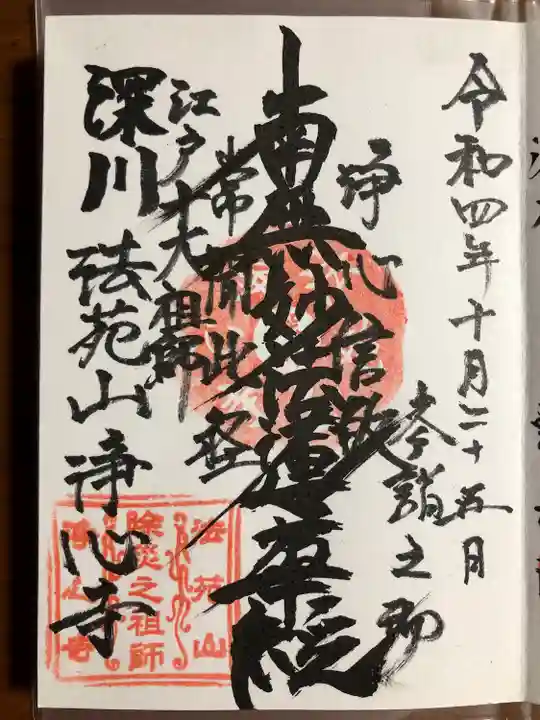 令和四年十月二十五日
参詣之砌
浄心信敬
南無妙法蓮華経
常説此経
江戸大祖師
深川 法苑山 浄心寺
法苑山
除災之祖師
浄心寺